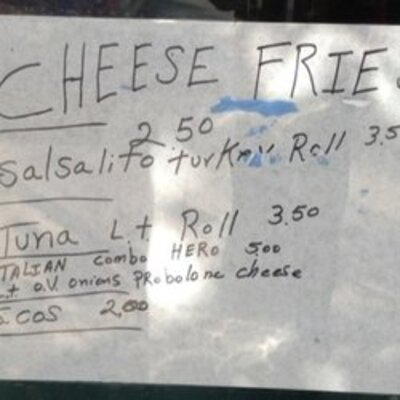 CHEESE FRIE
2 50
Salsalito turkey Roll 3.5
Tuna L.t Roll 3.50
TALIAN combo HERO 5.00
L.t O.V onions PRobolone cheese
acos 2,00